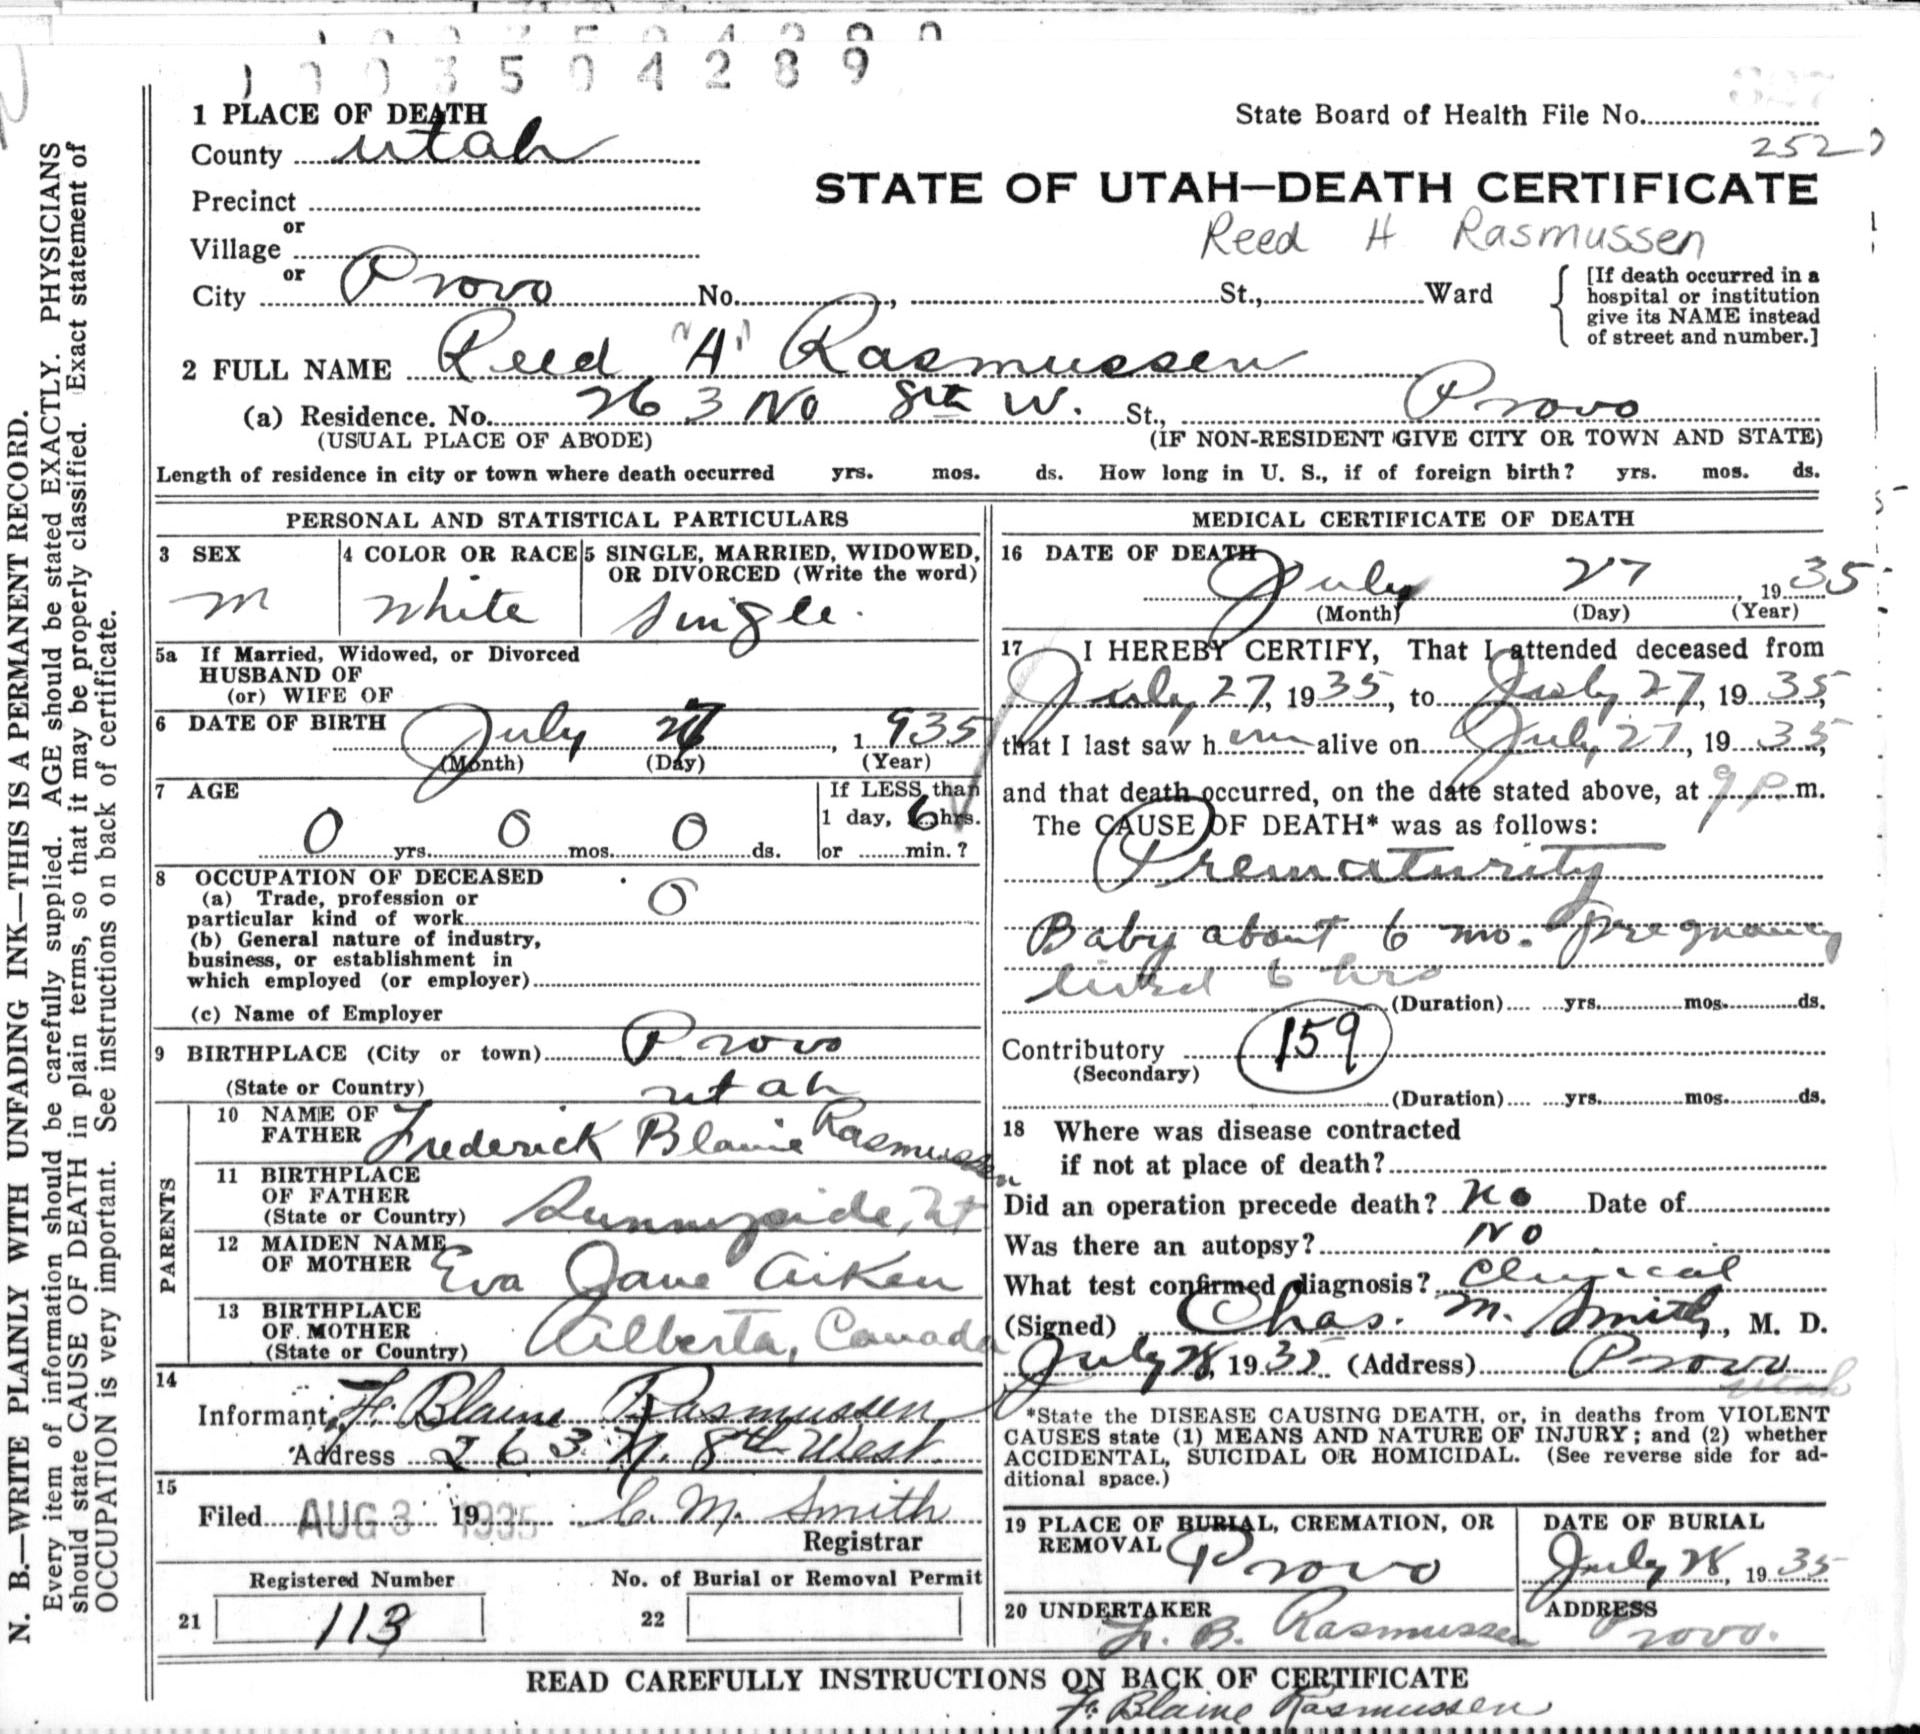 1003504289
State Board of Health File No. 327
252
1 PLACE OF DEATH
County Utah
Precinct
or
Village
or
City Provo No. , St., Ward
STATE OF UTAH—DEATH CERTIFICATE
Reed H Rasmussen
[If death occurred in a
hospital or institution
give its NAME instead
of street and number.]
2 FULL NAME Reed "A" Rasmussen
(a) Residence. No. 263 No 8th W. St., Provo
(USUAL PLACE OF ABODE) (IF NON-RESIDENT GIVE CITY OR TOWN AND STATE)
Length of residence in city or town where death occurred yrs. mos. ds. How long in U. S., if of foreign birth? yrs. mos. ds.
PERSONAL AND STATISTICAL PARTICULARS
3 SEX 4 COLOR OR RACE 5 SINGLE, MARRIED, WIDOWED,
OR DIVORCED (Write the word)
M White Single.
5a If Married, Widowed, or Divorced
HUSBAND OF
(or) WIFE OF
6 DATE OF BIRTH July 27, 1935
(Month) (Day) (Year)
7 AGE If LESS than
1 day, 6 hrs.
0 yrs. 0 mos. 0 ds. or min.?
8 OCCUPATION OF DECEASED
(a) Trade, profession or
particular kind of work 0
(b) General nature of industry,
business, or establishment in
which employed (or employer)
(c) Name of Employer
9 BIRTHPLACE (City or town) Provo
(State or Country) Utah
PARENTS
10 NAME OF
FATHER Frederick Blaine Rasmussen
11 BIRTHPLACE
OF FATHER
(State or Country) Sunnyside, Ut
12 MAIDEN NAME
OF MOTHER Eva Jane Aiken
13 BIRTHPLACE
OF MOTHER
(State or Country) Alberta, Canada
14
Informant F. Blaine Rasmussen
Address 263 N. 8th West.
15
Filed AUG 3 1935 19 C. M. Smith
Registrar
Registered Number No. of Burial or Removal Permit
21 113 22
MEDICAL CERTIFICATE OF DEATH
16 DATE OF DEATH
July 27, 1935
(Month) (Day) (Year)
17 I HEREBY CERTIFY, That I attended deceased from
July 27, 1935, to July 27, 1935,
that I last saw h im alive on July 27, 1935,
and that death occurred, on the date stated above, at 9 p. m.
The CAUSE OF DEATH* was as follows:
Prematurity
Baby about 6 mo. pregnancy
lived 6 hrs
(Duration) yrs. mos. ds.
Contributory 159
(Secondary)
(Duration) yrs. mos. ds.
18 Where was disease contracted
if not at place of death?
Did an operation precede death? No Date of
Was there an autopsy? No
What test confirmed diagnosis? Clinical
(Signed) Chas. M. Smith, M. D.
July 28, 1935 (Address) Provo
Utah
*State the DISEASE CAUSING DEATH, or, in deaths from VIOLENT
CAUSES state (1) MEANS AND NATURE OF INJURY; and (2) whether
ACCIDENTAL, SUICIDAL OR HOMICIDAL. (See reverse side for ad-
ditional space.)
19 PLACE OF BURIAL, CREMATION, OR
REMOVAL Provo
DATE OF BURIAL
July 28, 1935
20 UNDERTAKER
F. B. Rasmussen
ADDRESS
Provo.
READ CAREFULLY INSTRUCTIONS ON BACK OF CERTIFICATE
F. Blaine Rasmussen
N. B.—WRITE PLAINLY WITH UNFADING INK—THIS IS A PERMANENT RECORD.
Every item of information should be carefully supplied. AGE should be stated EXACTLY. PHYSICIANS
should state CAUSE OF DEATH in plain terms, so that it may be properly classified. Exact statement of
OCCUPATION is very important. See instructions on back of certificate.